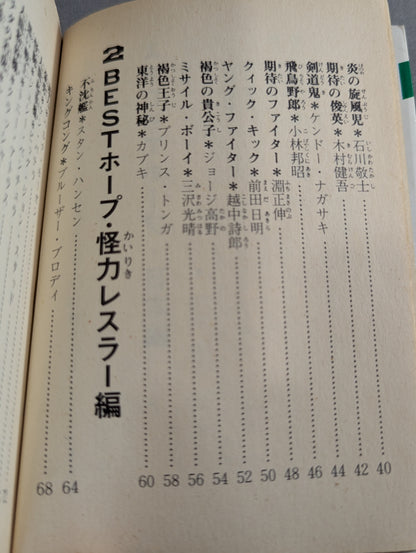 炎の旋風児＊石川敬士……40
期待の俊英＊木村健吾……42
剣道鬼＊ケンドー・ナガサキ……44
飛鳥野郎＊小林邦昭……46
期待のファイター＊淵正伸……48
クィック・キック＊前田日明……50
ヤング・ファイター＊越中詩郎……52
褐色の貴公子＊ジョージ高野……54
ミサイル・ボーイ＊三沢光晴……56
褐色王子＊プリンス・トンガ……58
東洋の神秘＊カブキ……60
2 BESTホープ・怪力レスラー編
不沈艦＊スタン・ハンセン……64
キングコング＊ブルーザー・ブロディ……68